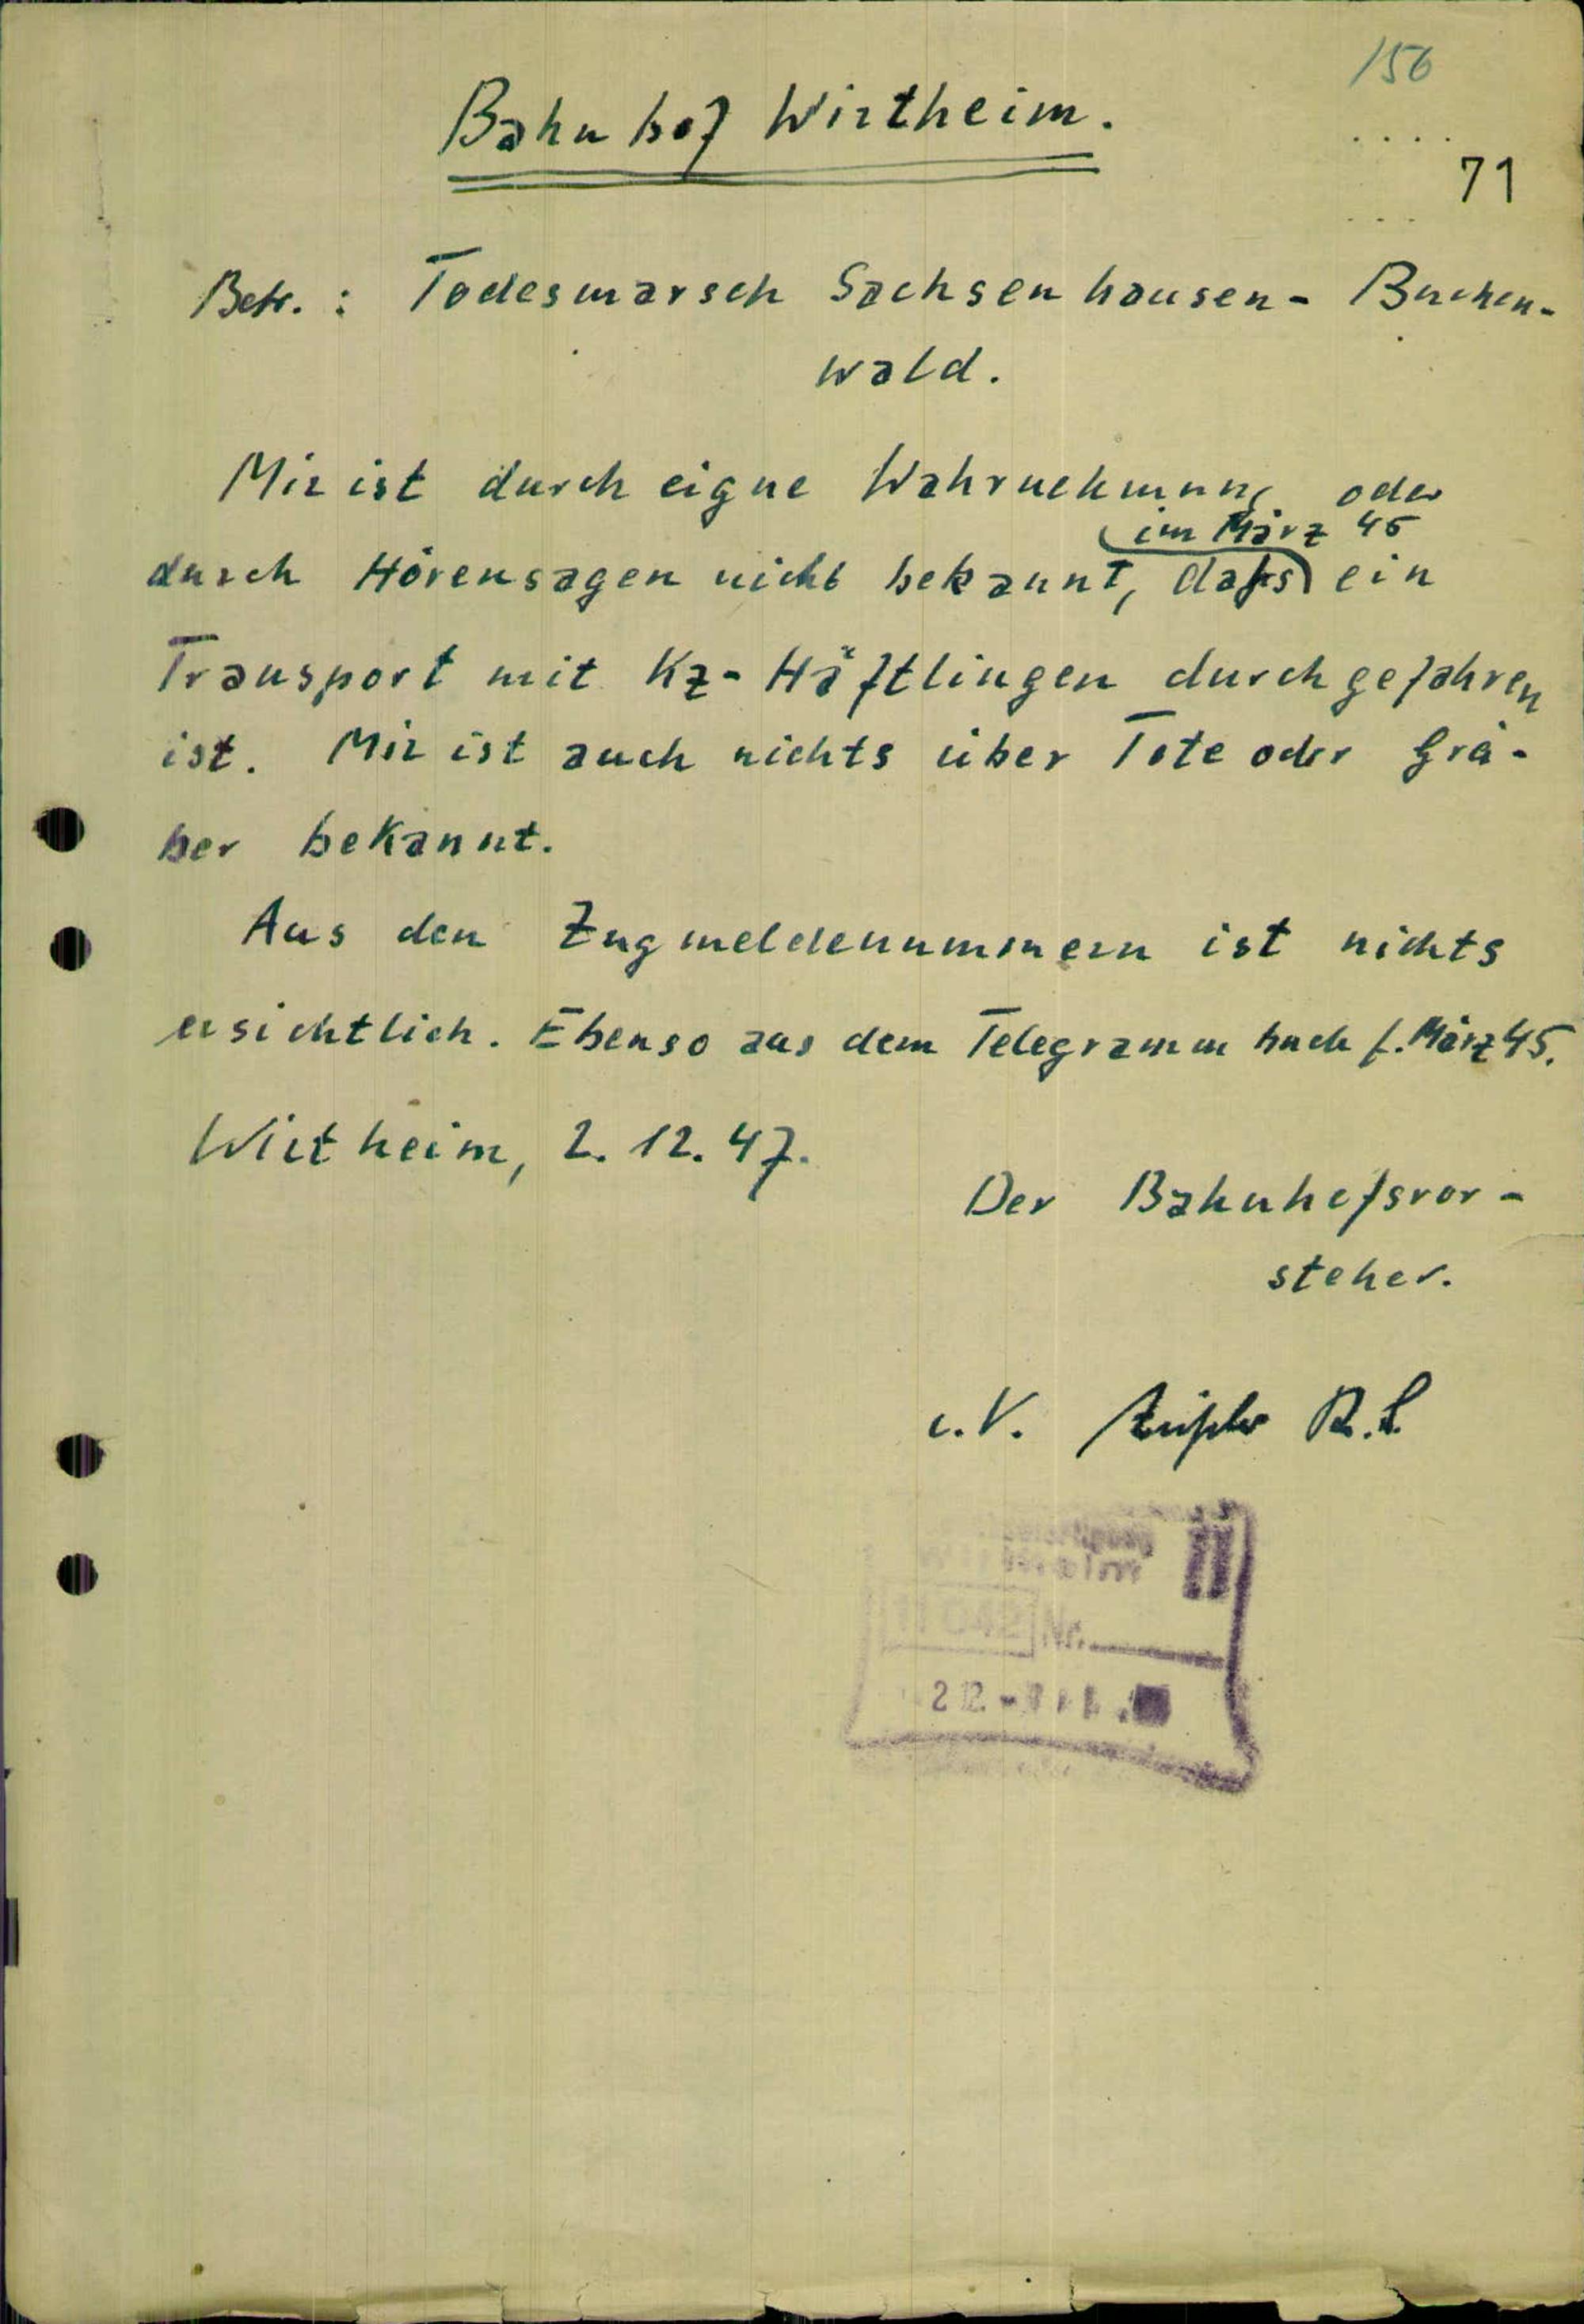 156
Bahnhof Wirtheim.
71
Betr.: Todesmarsch Sachsenhausen- Buchen-
wald.
Mir ist durch eigne Wahrnehmung oder
im März 45
durch Hörensagen nicht bekannt, dass ein
Transport mit Kz-Häftlingen durchgefahren
ist. Mir ist auch nichts über Tote oder Grä-
ber bekannt.
Aus den Zugmeldenummern ist nichts
ersichtlich. Ebenso aus dem Telegrammbuch f. März 45.
Wirtheim, 2. 12. 47.
Der Bahnhofsvor-
steher.
i.V.
11 042 Nr.
2 12.